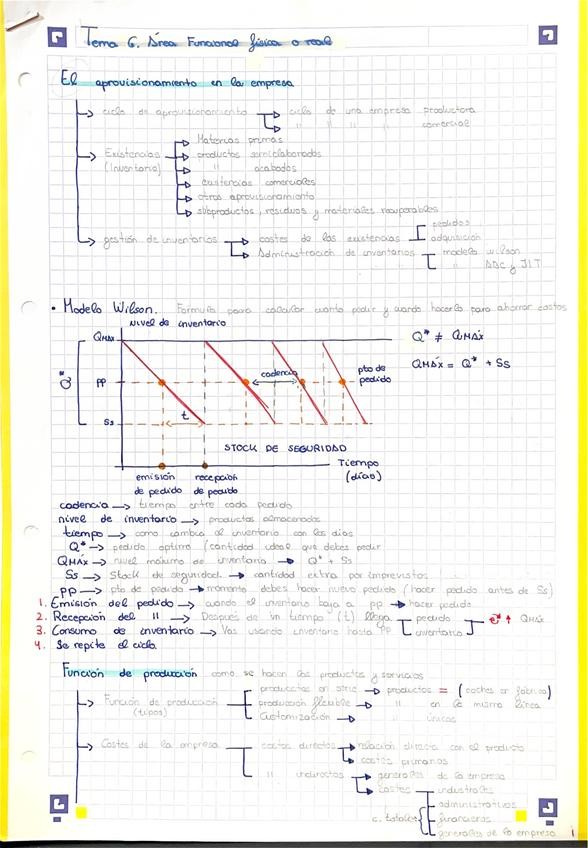 Tema 6. Área Funcional física o real
El aprovisionamiento en la empresa
ciclo de aprovisionamiento → ciclo de una empresa productora
" " " " comercial
Existencias (Inventario) → Materias primas
productos semielaborados
" acabados
existencias comerciales
otros aprovisionamiento
subproductos, residuos y materiales recuperables
gestión de inventarios → costes de las existencias pedidos
adquisición
Administración de inventarios modelo wilson
" ABC y JIT
• Modelo Wilson. Formula para calcular cuanto pedir y cuando hacerlo para ahorrar costos
Nivel de inventario
QMÁX
Q*
PP
Ss
cadencia
pto de pedido
t
STOCK DE SEGURIDAD
Tiempo (días)
emisión de pedido
recepción de pedido
Q* ≠ QMÁX
QMÁX = Q* + Ss
cadencia → tiempo entre cada pedido
nivel de inventario → productos almacenados
tiempo → como cambia el inventario con los días
Q* → pedido optimo (cantidad ideal que debes pedir
QMÁX → nivel máximo de inventario → Q* + Ss
Ss → Stock de seguridad → cantidad extra por imprevistos
PP → pto de pedido → momento debes hacer nuevo pedido (hacer pedido antes de Ss)
1. Emisión del pedido → cuando el inventario baja a PP → hacer pedido
2. Recepción del " → Después de un tiempo (t) llega pedido
inventario ↑ QMÁX
3. Consumo de inventario → Vas usando inventario hasta PP
4. Se repite el ciclo.
Función de producción como se hacen los productos y servicios
Función de producción (tipos) productos en serie → productos = (coches en fábrica)
producción flexible → " en la misma línea
Customización → " únicos
Costes de la empresa costes directos → relación directa con el producto
costes primarios
" indirectos → generales de la empresa
costes → industriales
c. totales administrativos
financieros
generales de la empresa
1